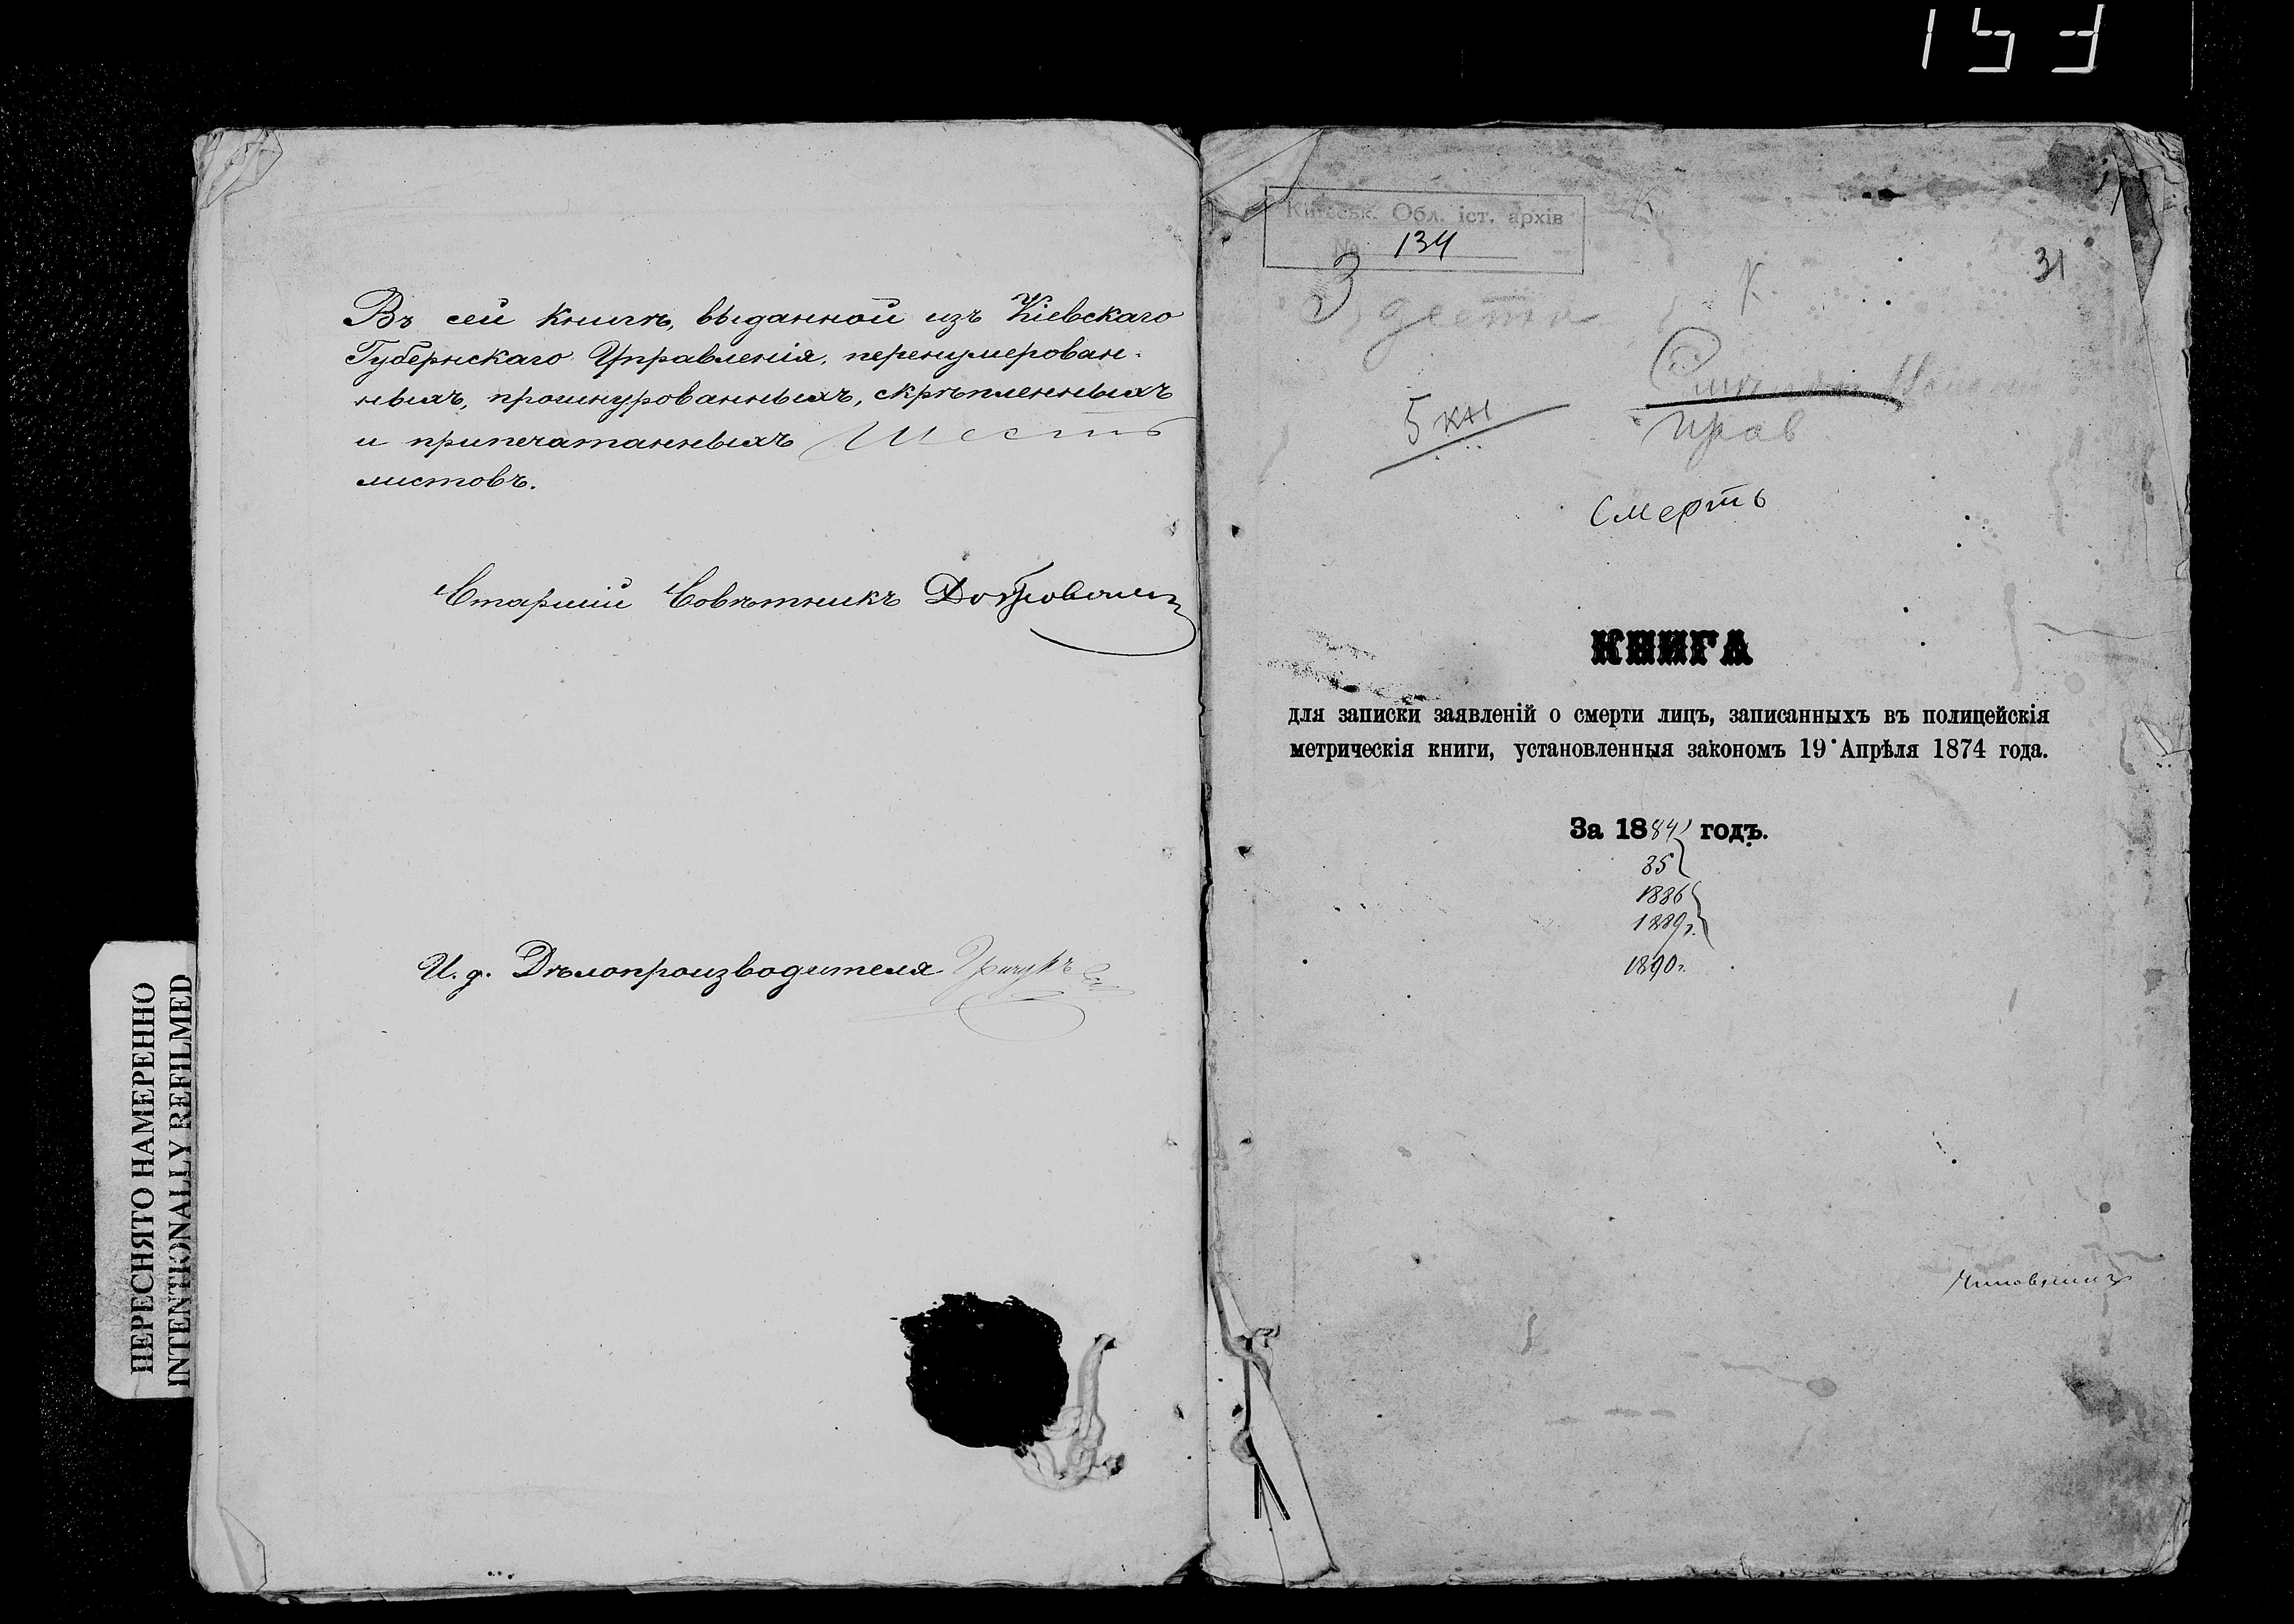 153
Въ сей книгѣ, выданной изъ Кіевскаго
Губернскаго Управленія, перенумерован-
ныхъ, прошнурованныхъ, скрѣпленныхъ
и припечатанныхъ шесть
листовъ.
Старшій Совѣтникъ
И. д. Дѣлопроизводителя
ПЕРЕСНЯТО НАМЕРЕННО
INTENTIONALLY REFILMED
Київськ. Обл. іст. архів
№ 134
31
5 кн
прав
Смерть
КНИГА
для записки заявленій о смерти лицъ, записанныхъ въ полицейскія
метрическія книги, установленныя закономъ 19 Апрѣля 1874 года.
За 1884 годъ.
85
1886
1889 г.
1890 г.